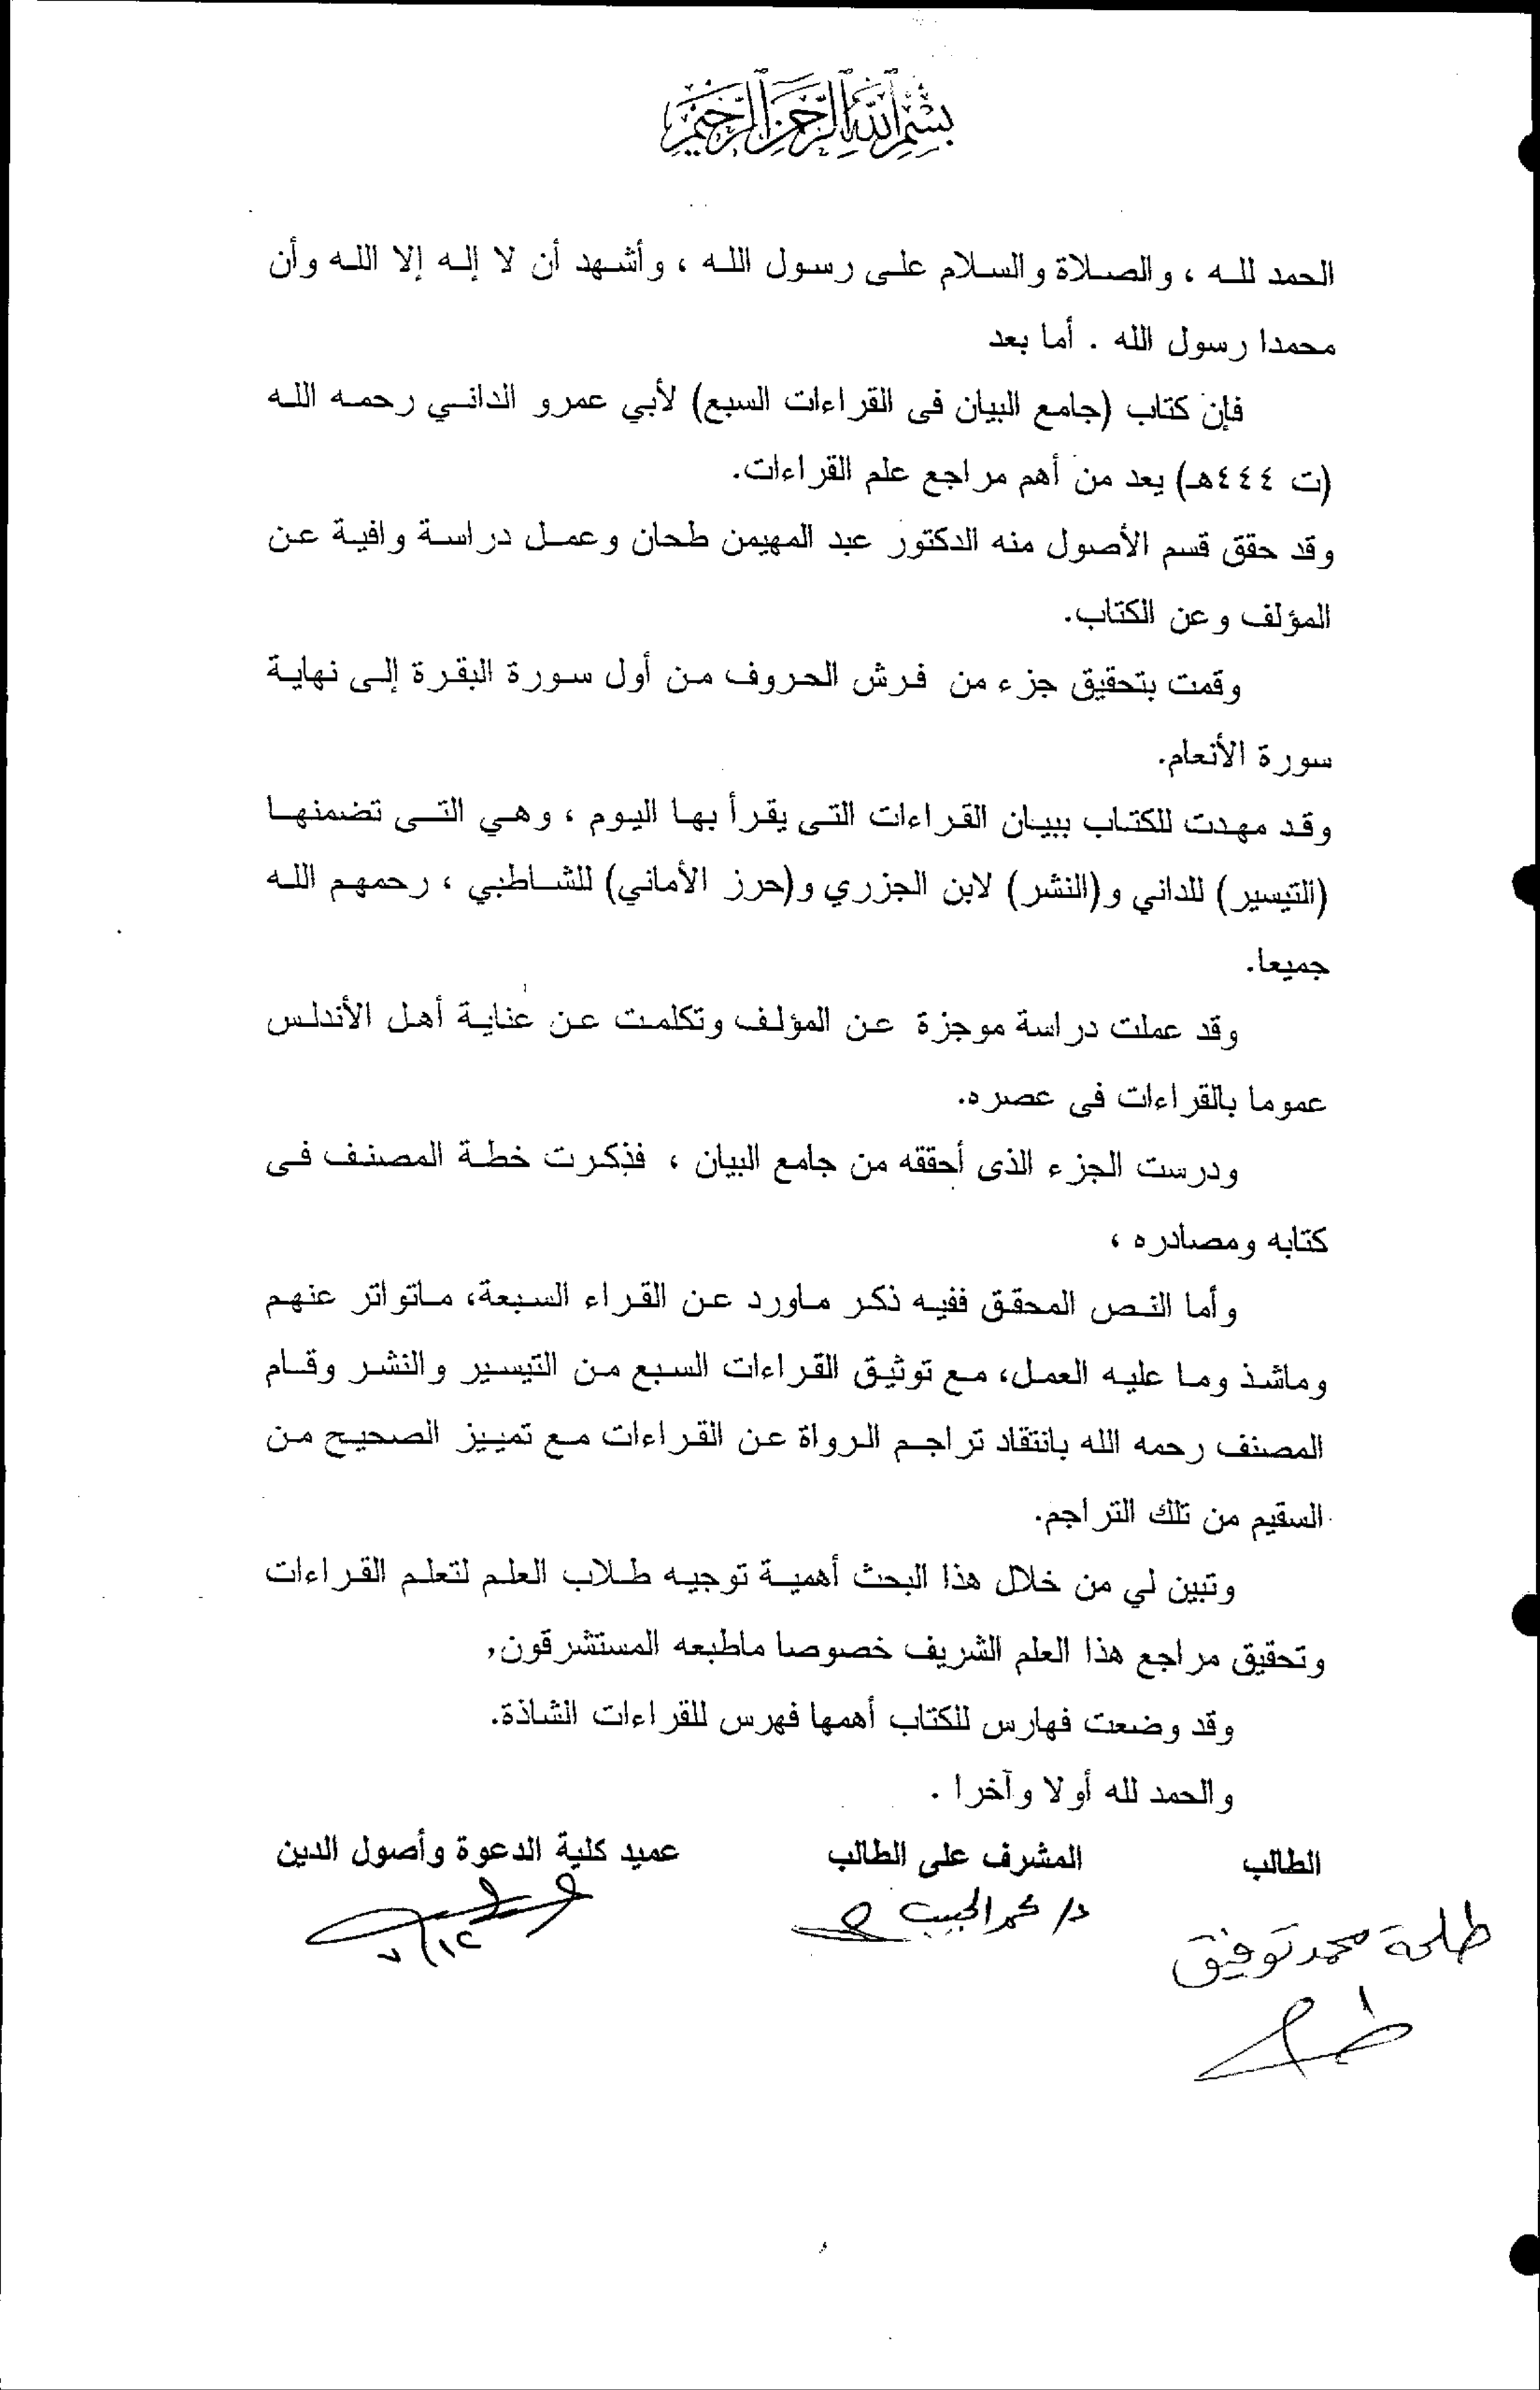 بسم الله الرحمن الرحيم
الحمد لله ، والصلاة والسلام على رسول الله ، وأشهد أن لا إله إلا الله وأن
محمدا رسول الله . أما بعد
فإن كتاب (جامع البيان فى القراءات السبع) لأبي عمرو الداني رحمه الله
(ت ٤٤٤هـ) يعد من أهم مراجع علم القراءات.
وقد حقق قسم الأصول منه الدكتور عبد المهيمن طحان وعمل دراسة وافية عن
المؤلف وعن الكتاب.
وقمت بتحقيق جزء من فرش الحروف من أول سورة البقرة إلى نهاية
سورة الأنعام.
وقد مهدت للكتاب ببيان القراءات التى يقرأ بها اليوم ، وهي التى تضمنها
(التيسير) للداني و(النشر) لابن الجزري و(حرز الأماني) للشاطبي ، رحمهم الله
جميعا.
وقد عملت دراسة موجزة عن المؤلف وتكلمت عن عناية أهل الأندلس
عموما بالقراءات فى عصره.
ودرست الجزء الذى أحققه من جامع البيان ، فذكرت خطة المصنف فى
كتابه ومصادره ،
وأما النص المحقق ففيه ذكر ماورد عن القراء السبعة، ماتواتر عنهم
وماشذ وما عليه العمل، مع توثيق القراءات السبع من التيسير والنشر وقام
المصنف رحمه الله بانتقاد تراجم الرواة عن القراءات مع تمييز الصحيح من
السقيم من تلك التراجم.
وتبين لي من خلال هذا البحث أهمية توجيه طلاب العلم لتعلم القراءات
وتحقيق مراجع هذا العلم الشريف خصوصا ماطبعه المستشرقون,
وقد وضعت فهارس للكتاب أهمها فهرس للقراءات الشاذة.
والحمد لله أولا وآخرا .
الطالب المشرف على الطالب عميد كلية الدعوة وأصول الدين
طلحة محمد توفيق د/ محمد الحبيب